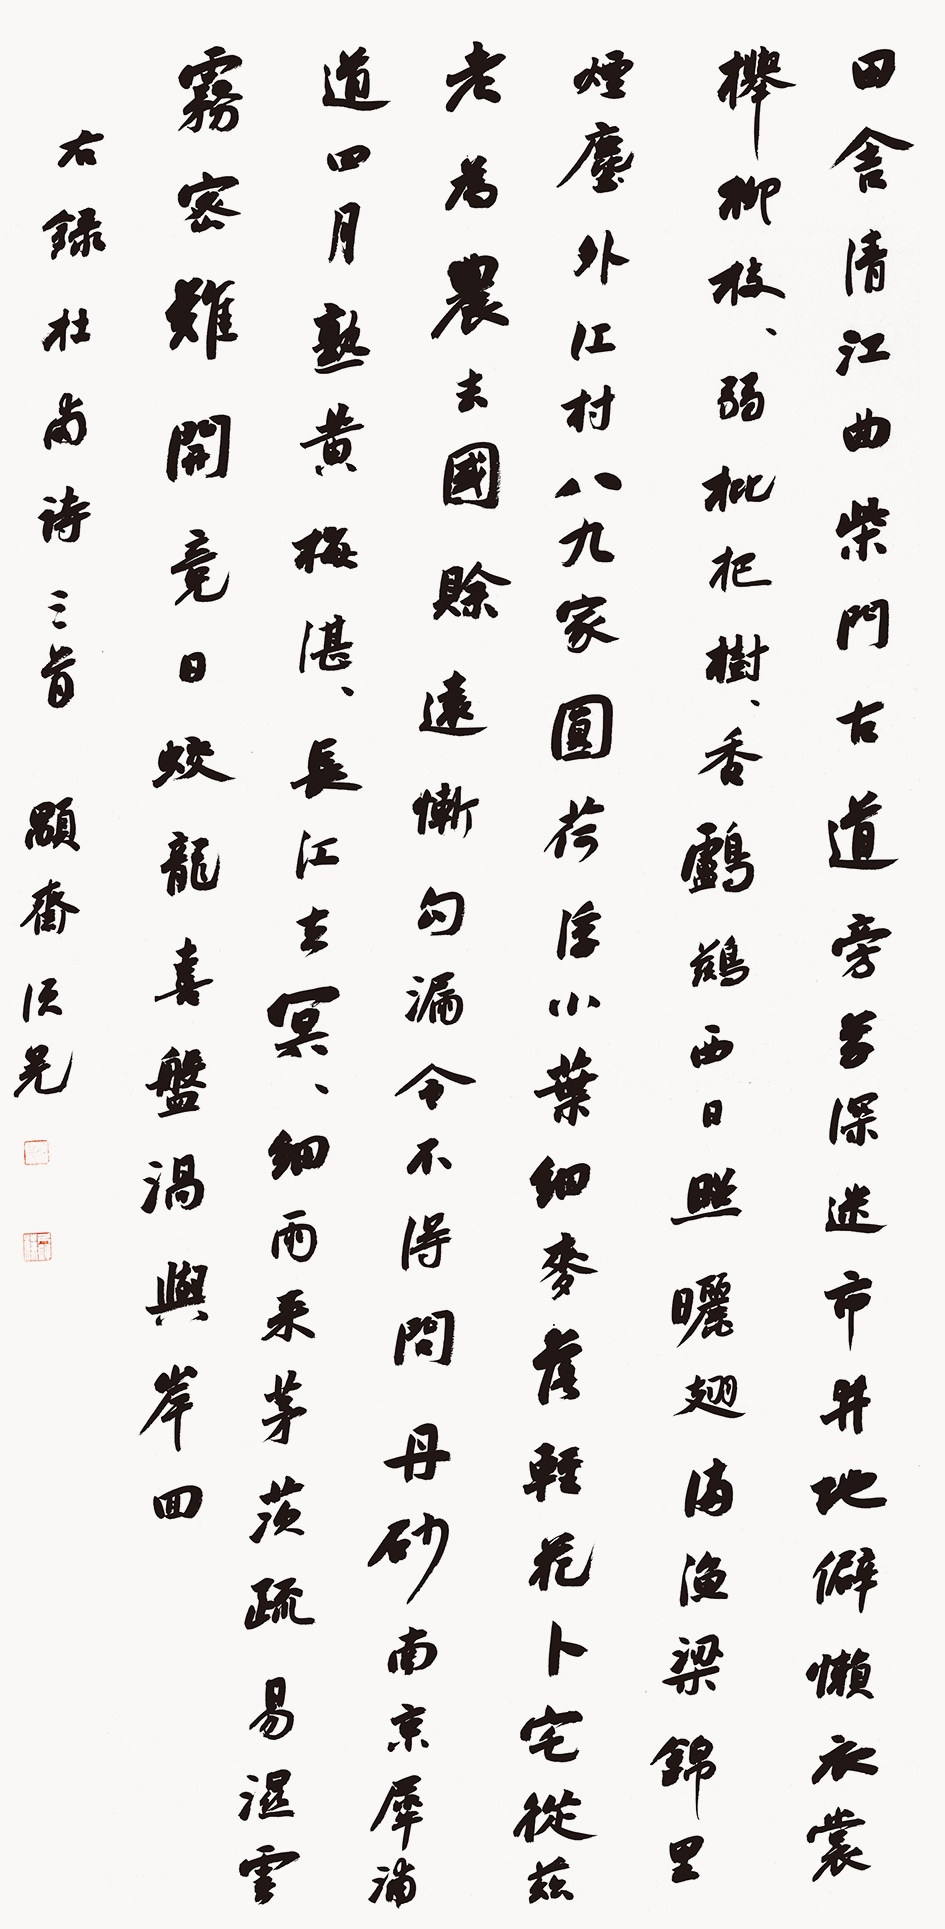 田舍清江曲柴門古道旁草深迷市井地僻懶衣裳
櫸柳枝、弱枇杷樹、香鸕鷀西日照曬翅滿漁梁錦里
煙塵外江村八九家圓荷浮小葉細麥落輕花卜宅從茲
老為農去國賒遠慚勾漏令不得問丹砂南京犀浦
道四月熟黄梅湛、長江去冥、細雨來茅茨疏易濕雲
霧密難開竟日蛟龍喜盤渦與岸回
右録杜甫詩三首 顒齋